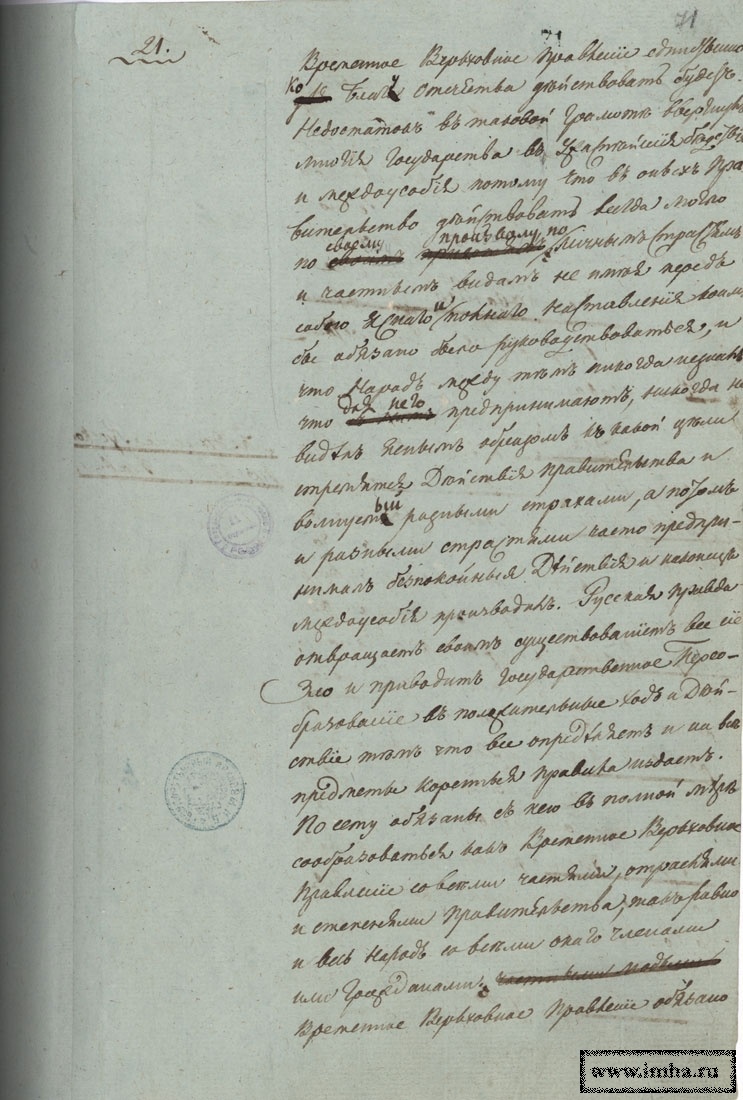 71
71
21.
Временное Верьховное Правленiе единственно
ко благу отечества дѣйствовать будетъ.
Недостатокъ въ таковой Грамотѣ ввергнулъ
многiя Государства въ ужаснѣйшiя бѣдствiя
и междоусобiя потому что въ оныхъ Пра-
вительство дѣйствовать всегда могло
своему произволу по
по личнымъ страстямъ
и частнымъ видамъ не имѣя передъ
собою яснаго и полнаго наставленiя коимъ
бы обязано было руководствоваться, и
что Народъ между тѣмъ никогда не зналъ
что для него предпринимаютъ, никогда не
видѣлъ яснымъ образомъ къ какой цѣли
стремятся Дѣйствiя правительства и
волнуемый разными страхами, а потомъ
и разными страстями часто предпри-
нималъ безпокойныя Дѣйствiя и наконецъ
междоусобiя производилъ. Русская Правда
отвращаетъ своимъ существованiемъ все сiе
Зло и приводитъ Государственное Прео-
бразованiе въ положительные ходъ и Дѣй-
ствiе тѣмъ что все опредѣляетъ и на все
предметы коренныя правила издаетъ.
По сему обязаны съ нею въ полной мѣрѣ
сообразоваться какъ Временное Верьховное
Правленiе со всѣми частями, отраслями
и степенями Правительства, такъ равно
и весь Народъ со всѣми онаго членами
или Гражданами.
Временное Верьховное Правленiе обязано
www.imha.ru